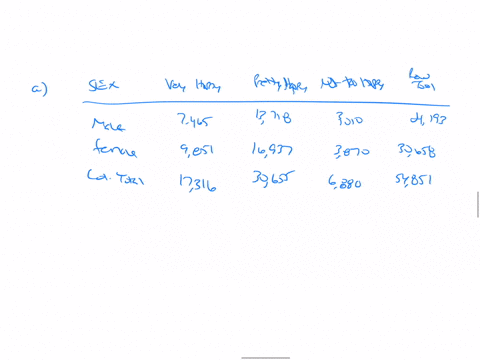 a) SEX Very Happy Pretty Happy Not too Happy Row Total
Male 7,465 13,718 3,010 24,193
female 9,851 16,937 3,870 30,658
Col. Total 17,316 30,655 6,880 54,851